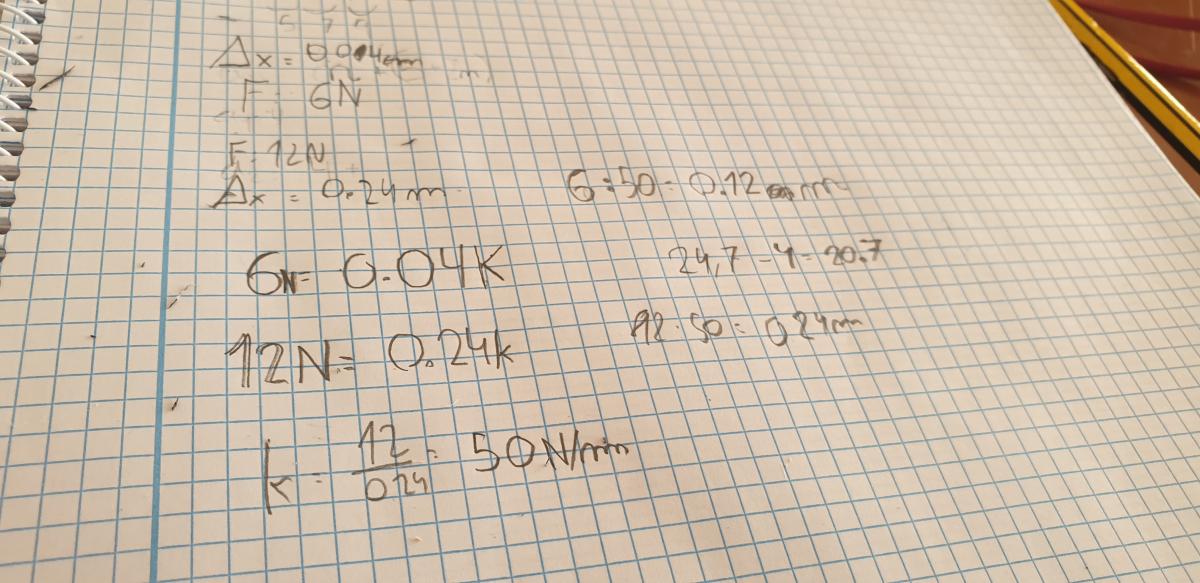 F= 6N
F= 12N
Δx = 0.24m
6:50= 0.12 m
6N= 0.04K
24,7 - 4= 20.7
12N= 0.24k
12:50= 0,24m
k = 12/024 = 50N/m